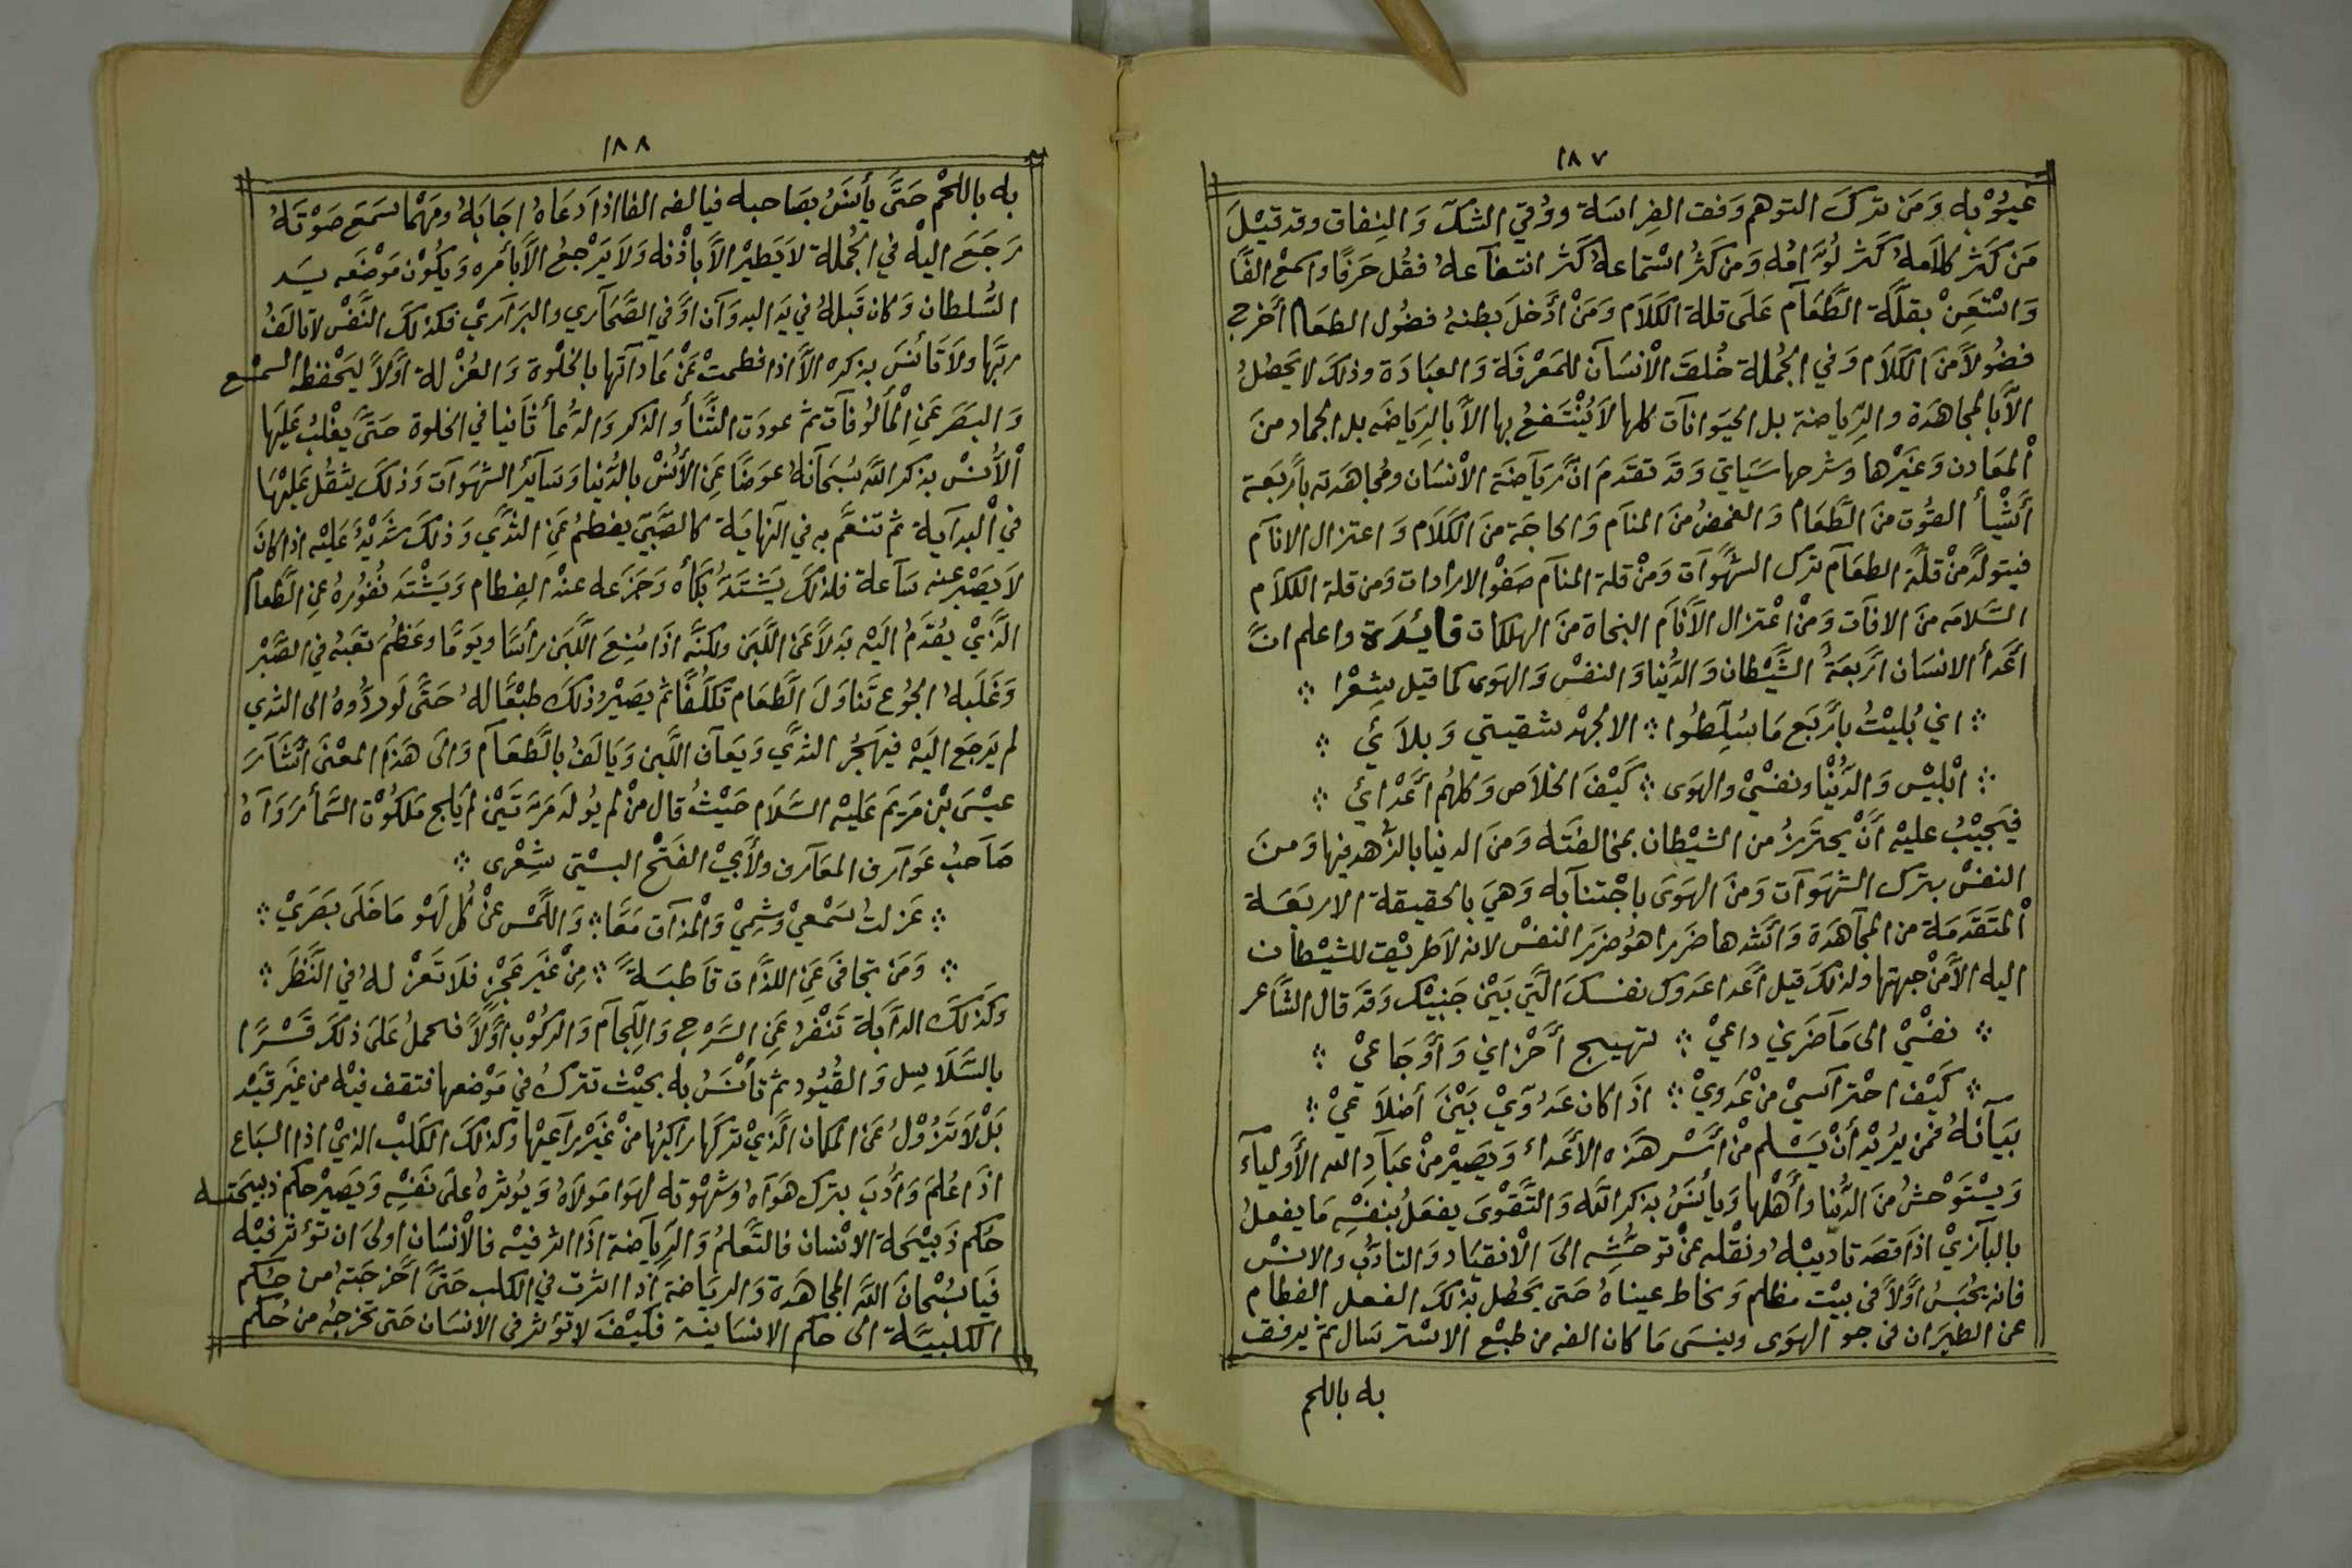 ١٨٧
عُيُوْبِه وَمَن ترك التوهم وَفق الفِراسَة ووُقي الشك وَالنِفاق وقد قيْلَ
مَن كَثر كلامه كَثر لُوَّامُه وَمن كَثُر اسْتماعهُ كَثر انتفاعهُ فقُل حَرفًا واسمعْ الفًا
وَاسْتَعِنْ بقلَّة الطَّعَام عَلَى قلة الكَلَام وَمَنْ أدْخلَ بطنهُ فضُول الطعَام أخرج
فضُولًا منَ الكَلَام وَفي الجُملة خُلقَ الْانسَان للمَعْرفَة وَالعبَادَة وذلكَ لا يَحصُلُ
الَّا بالمجَاهَدَة والرِّياضة بل الحيَوانات كلها لَا يُنْتَفعُ بها الَّا بالرِيَاضَه بل الجماد منَ
الْمعَادن وَغيْرها وشرحها سَيَاتي وَقَد تقدَمَ انّ رِيَاضَة الْانسَان ومُجاهَدته بأرْبَعة
أشْيأ القُوت منَ الطَّعَام وَالغمضُ منَ المنَام وَالحاجَة منَ الكَلَام وَاعتزال الانام
فيتولَّد مِنْ قلَّة الطعَام ترك الشهَوات وَمنْ قلة المنَام صَفْو الارادات وَمن قلة الكلَام
السَّلامَه منَ الافات وَمنْ اعْتزال الَأنَام النجاة منَ الهلكات فائدَة واعلم انَّ
أعْدأ الانسَان أرْبعَةُ الشَّيْطان وَالدُّنيا وَالنفسْ وَالهَوى كما قيل شِعْرا ⁘
⁘ اني بُليْتُ بأرْبَع مَا سُلّطُوا ⁘ الا لجُهْد شقوتي وَبلَائي ⁘
⁘ ابْليْس وَالدُّنْيا ونفسْيْ والهَوى ⁘ كَيْفَ الخلَاص وَكلهُم أعْدَائي ⁘
فيَجِبُ عليْه أنْ يحترزُ من الشيْطان بمخالفَته وَمنَ الدنيا بالزُهد فيها وَمنَ
النفسْ بترك الشهَوات وَمنَ الهَوَى باجْتنابه وَهيَ بالحقيقة الاربعَة
الْمتَقدّمَة من المجَاهَدَة وَاشَدها ضَررا هُو ضَرر النفسْ لانه لَا طريْق للشيْطان
اليه الّا منْ جهتها ولذلكَ قيل أعْدا عَدوك نفسكَ الَّتي بَيْن جَنبيْك وَقَد قال الشَّاعر
⁘ نفسْيْ الى مَا ضَرني داعيْ ⁘ تهيج أحْزاني وَأوْجَاعيْ ⁘
⁘ كَيْف احْتراسيْ منْ عَدوِيْ ⁘ اذَا كان عَدُوِيْ بَيْنَ أضلَاعيْ ⁘
بيَانهُ فمن يُريْد أنْ يَسْلم مْن أسْر هَذه الأعْداء وَيَصيْر منْ عبَادِ الله الأوْلياء
وَيسْتَوْحشُ منَ الدُّنيا وأهْلها وَيأنَسُ بذكر الله وَالتَّقْوَى يفعَلُ بنفسْه مَا يفعلُ
بالبَازيْ اذَا قصَد تاديبْهُ ونقْله عَنْ توحُّشِه الىَ الْانقيَاد وَالتأدُّب والانسْ
فانه يحْبَسُ أوَّلاً في بيْت مظلم وَيخاط عيناهُ حَتى يَحصُل بذلكَ الفعل الفطام
عن الطيَران في جو الهَوى وينسَى مَا كان الفه من طبْع الاسْترسَال ثم يرفق
به باللحم
١٨٨
به باللحْم حَتَّى يأنَسُ بصَاحبه فيالفه الفا اذا دعَاهُ اجَابَهُ ومَهْما سَمَع صَوْتَهُ
رَجَعَ اليْه في الجُملة لَا يَطيْر الَّا باذْنه وَلَا يَرْجعُ الَّا بأمْره وَيكُوْن مَوْضَعه يَد
السُّلطان وَكان قَبلهُ في يَد البدوان اوْ في الصَّحَاري والبَراريْ فكذلكَ النَّفسْ لا تالفُ
ربَّها ولَا تَانسَ بذكره الَّا اذا فطمتْ عَنْ عَاداتها بالخلْوة وَالعُزْلة اوَّلًا ليَحْفظ السمْع
وَالبَصَر عَنِ الْمألُوفات ثم عودَت الثَّنأ والذكر وَالدُعأ ثَانيا في الخلوة حَتَّى يغْلبُ عَليَها
الْأُنسْ بذكر اللّه سُبحَانهُ عوَضًا عَن الأنْسْ بالدُّنيا وَسَائِر الشهَوات وَذلكَ يثقُل عَليْهَا
في الْبدايَة ثم تنعَّم به في النهايَة كالصَّبيّ يفطمُ عَنِ الثدَّيِ وَذلكَ شديْدٌ عَليْه اذا كانَ
لَا يَصْبر عنه سَاعة فلذلكَ يَشتَدّ بُكَأه وَجَزَعه عنْد الفِطام وَيَشْتَد نُفُورُهُ عَنِ الطَّعام
الَّذيْ يُقَدمُ اليَه بَدلًا عَن اللَّبَن ولكنَّه اذَا مُنِعَ اللَّبَن رأسَا ويَومًا وعَظُمَ تعَبُه في الصَّبْر
وَغَلَبهُ الجُوع تَناوَلَ الطَّعَام تَكلُّفًا ثم يَصيْر ذلكَ طبْعًا لهُ حَتَّى لَو رُدُّوهُ الى الثدي
لم يَرجَع اليَه فيهْجُر الثدَّي وَيعَاف اللَّبن وَيَالَفُ بالطَّعَام وَالَى هَذَا المعْنَى أشَارَ
عيْسَى بْن مَريم عَليْه السَّلَام حَيْثُ قال منْ لم يُولَد مَرتَيْن لمْ يَلج مَلكُوْت السَّمأ رَوَاهُ
صَاحبُ عَوارف المعَارف ولأبيْ الفَتْح البسْتي شِعْرى ⁘
⁘ عَزلتُ سَمْعيْ وشَمِيْ وَالْمذاق مَعًا ⁘ وَاللّمْس عنْ كُل لَهْو مَا خَلَى بَصَريْ ⁘
⁘ وَمَن تجَافَى عَنِ اللذَّات قاطبَةً ⁘ مِنْ غيَر عَجْزٍ فلَا تَعْزلهُ في النَّظَر ⁘
وَكذلكَ الدَابَّة تَنْفرُ عَنِ السَّرْج وَاللِّجَام وَالركُوْب أوَّلاً فتحملُ عَلىَ ذلكَ قَسْرًا
بالسَّلَاسِل وَالقُيُود ثم تَأنَسُ به بحيْث تتركُ في مَوْضعها فتقف فيْه من غيَر قيَد
بَلْ لَا تَزُوْلُ عَن المكان الَّذيْ تركَها راكبُها منْ غَيْر رَاعيْها وكذلكَ الكلْب الذيْ اذا السبَاع
اذَا عُلمَ وَأُدبَ بترك هَوَاهُ وشهْوته لهَوا مَولَاهُ وَيُوثرهُ عَلىَ نَفسْه وَيَصيْر حكم ذَبيحَته
حُكم ذَبيْحَة الانسْان فالتَّعلمُ وَالرِيَاضة اذَا اثر فيْه فالْانسَان اولى ان تؤثر فيْه
فيَا سُبْحَانَ اللّه المجَاهَدة وَالرِيَاضة اذا اثرت في الكلب حَتَّى أخْرَجَتهُ من حُكم
الكلبيَّة الى حكم الانسَانية فكيْفَ لا تؤثر في الانسَان حَتى تخرجهُ من حُكم